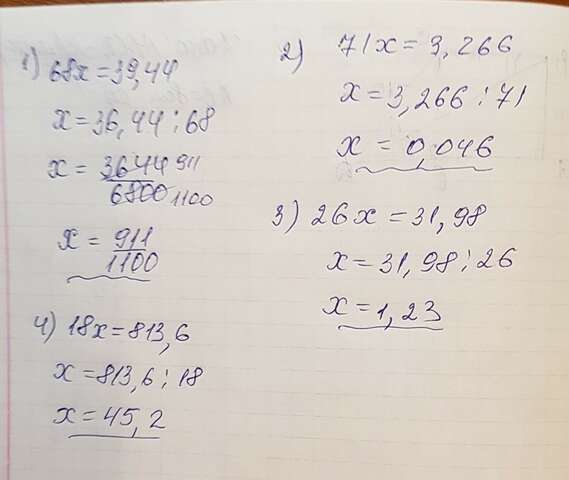 1) 68x = 39,44
x = 36,44 : 68
x = 3644 911
6800 1100
x = 911
1100
2) 71x = 3,266
x = 3,266 : 71
x = 0,046
3) 26x = 31,98
x = 31,98 : 26
x = 1,23
4) 18x = 813,6
x = 813,6 : 18
x = 45,2